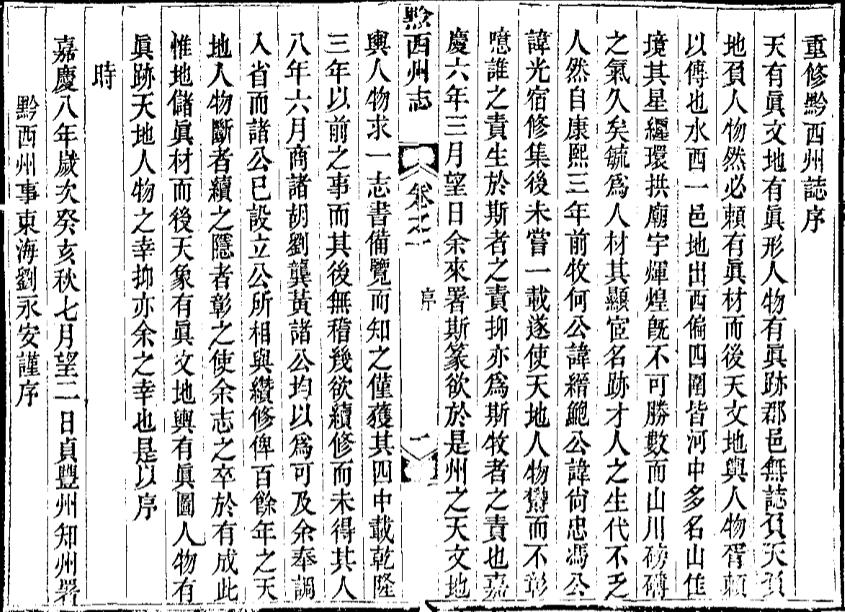 重修黔西州誌序
天有眞文地有眞形人物有眞跡郡邑無誌負天負
地負人物然必賴有眞材而後天文地輿人物胥賴
以傳也水西一邑地出西偏四圍皆河中多名山佳
境其星纏環拱廟宇輝煌旣不可勝數而山川磅礴
之氣久矣毓爲人材其顯宦名跡才人之生代不乏
人然自康熙三年前牧何公諱縉鮑公諱尙忠馮公
諱光宿修集後未嘗一載遂使天地人物鬱而不彰
噫誰之責生於斯者之責抑亦爲斯牧者之責也嘉
慶六年三月望日余來署斯篆欲於是州之天文地
黔西州志
卷之一
序
一
輿人物求一志書備覽而知之僅獲其四中載乾隆
三年以前之事而其後無稽幾欲續修而未得其人
八年六月商諸胡劉龔黃諸公均以爲可及余奉調
入省而諸公已設立公所相與纘修俾百餘年之天
地人物斷者續之隱者彰之使余志之卒於有成此
惟地儲眞材而後天象有眞文地輿有眞圖人物有
眞跡天地人物之幸抑亦余之幸也是以序
時
嘉慶八年歲次癸亥秋七月望二日貞豐州知州署
黔西州事東海劉永安謹序